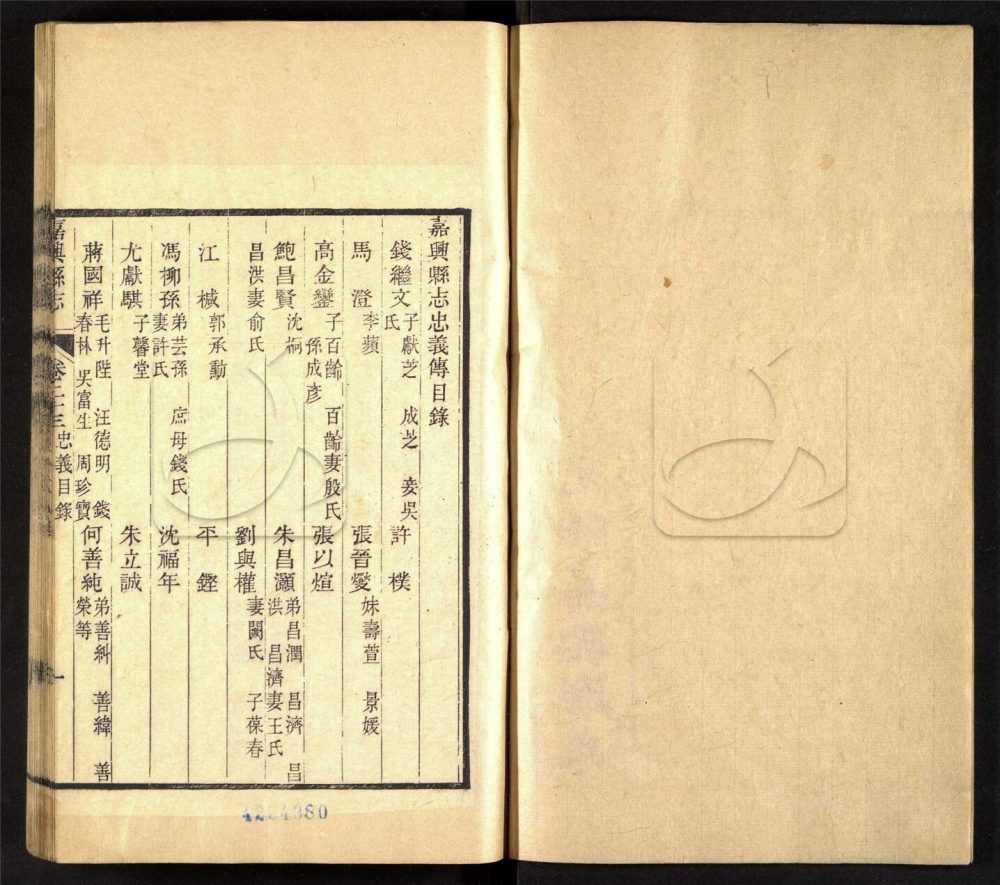 嘉興縣志忠義傳目錄
錢繼文 子獻芝 成芝 妾吳氏 許樸
馬澄 李蘋 張晉燮 妹壽萱 景媛
高金鑾 子百齡 百齡妻殷氏 孫成彥 張以煊
鮑昌賢 沈嗣 朱昌灝 弟昌潤 昌濟 昌洪 昌濟妻王氏
昌洪妻俞氏 劉與權 妻闕氏 子葆春
江棫 郭承勳 平鏗
馮柳孫 弟芸孫 庶母錢氏 妻許氏 沈福年
尤獻騏 子馨堂 朱立誠
蔣國祥 毛升陞 汪德明 錢春林 吳富生 周珍寶 何善純 弟善糾 善緯 善榮等
嘉興縣志 卷二十三 忠義目錄 一